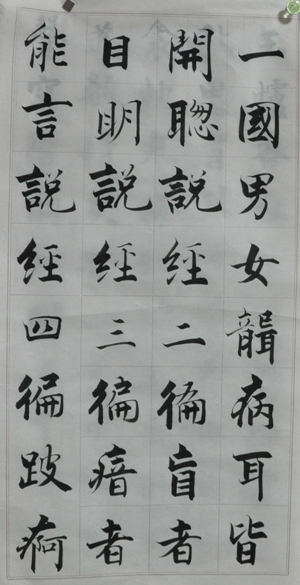 一國男女聾病耳皆
開聦說經二徧盲者
目明說經三徧瘖者
能言說經四徧跛痾